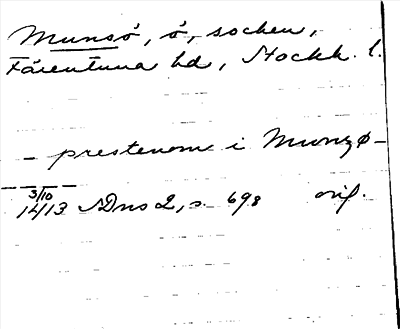 Munsö, ö, socken,
Färentuna hd, Stockh. l.
- prestenom i Munzø -
3/10
1413 SDns 2, s. 698 orig.